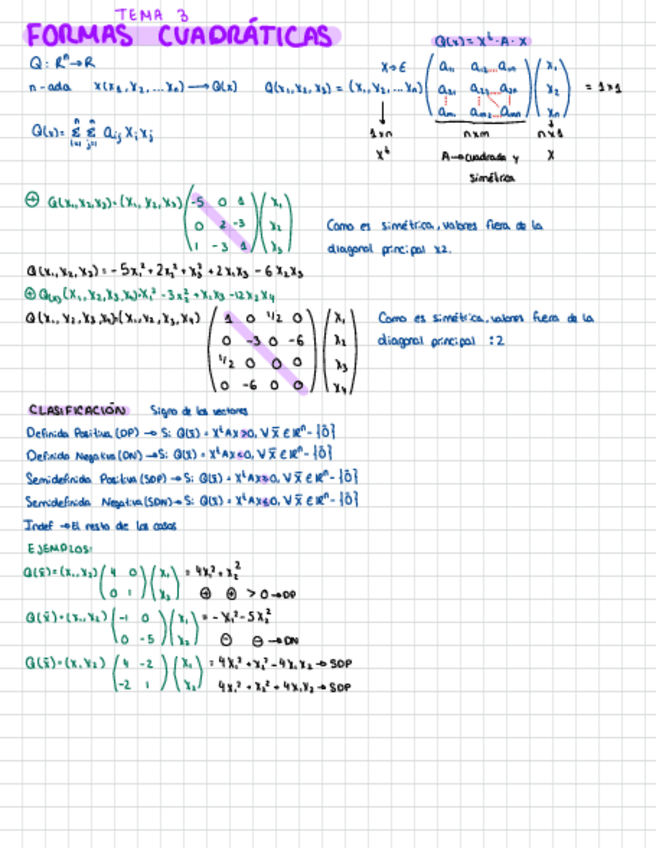 TEMA 3
FORMAS CUADRÁTICAS
Q(x) = Xᵗ · A · X
Q: Rⁿ → R
n-ada x(x₁, x₂, ... xₙ) → Q(x)
Q(x₁, x₂, x₃) = (x₁, x₂, ... xₙ) ( a₁₁ a₁₂...a₁ₙ ) ( x₁ ) = 1x1
( a₂₁ a₂₂...a₂ₙ ) ( x₂ )
( aₘ₁ aₘ₂...aₘₙ ) ( xₙ )
1xn nxm nx1
Xᵗ A→cuadrada y X
simétrica
Q(x) = Σ Σ aᵢⱼ xᵢ xⱼ
⊕ Q(x₁, x₂, x₃) = (x₁, x₂, x₃) ( -5 0 1 ) ( x₁ )
( 0 2 -3 ) ( x₂ )
( 1 -3 1 ) ( x₃ )
Como es simétrica, valores fuera de la
diagonal principal x2.
Q(x₁, x₂, x₃) = -5x₁² + 2x₂² + x₃² + 2x₁x₃ - 6x₂x₃
⊕ Q(x) (x₁, x₂, x₃, x₄) = x₁² - 3x₂² + x₁x₃ - 12x₂x₄
Q(x₁, x₂, x₃, x₄) = (x₁, x₂, x₃, x₄) ( 1 0 1/2 0 ) ( x₁ )
( 0 -3 0 -6 ) ( x₂ )
( 1/2 0 0 0 ) ( x₃ )
( 0 -6 0 0 ) ( x₄ )
Como es simétrica, valores fuera de la
diagonal principal :2
CLASIFICACIÓN Signo de los vectores
Definida Positiva (DP) → S: Q(x̄) = XᵗAX>0, ∀ x̄ ∈ Rⁿ - {ō}
Definida Negativa (DN) → S: Q(x̄) = XᵗAX<0, ∀ x̄ ∈ Rⁿ - {ō}
Semidefinida Positiva (SDP) → S: Q(x̄) = XᵗAX≥0, ∀ x̄ ∈ Rⁿ - {ō}
Semidefinida Negativa (SDN) → S: Q(x̄) = XᵗAX≤0, ∀ x̄ ∈ Rⁿ - {ō}
Indef → El resto de los casos
EJEMPLOS:
Q(x̄) = (x₁, x₂) ( 4 0 ) ( x₁ ) = 4x₁² + x₂²
( 0 1 ) ( x₂ ) ⊕ ⊕ > 0 → DP
Q(x̄) = (x₁, x₂) ( -1 0 ) ( x₁ ) = -x₁² - 5x₂²
( 0 -5 ) ( x₂ ) ⊖ ⊖ → DN
Q(x̄) = (x₁ x₂) ( 4 -2 ) ( x₁ ) = 4x₁² + x₂² - 4x₁x₂ → SDP
( -2 1 ) ( x₂ ) 4x₁² + x₂² + 4x₁x₂ → SDP